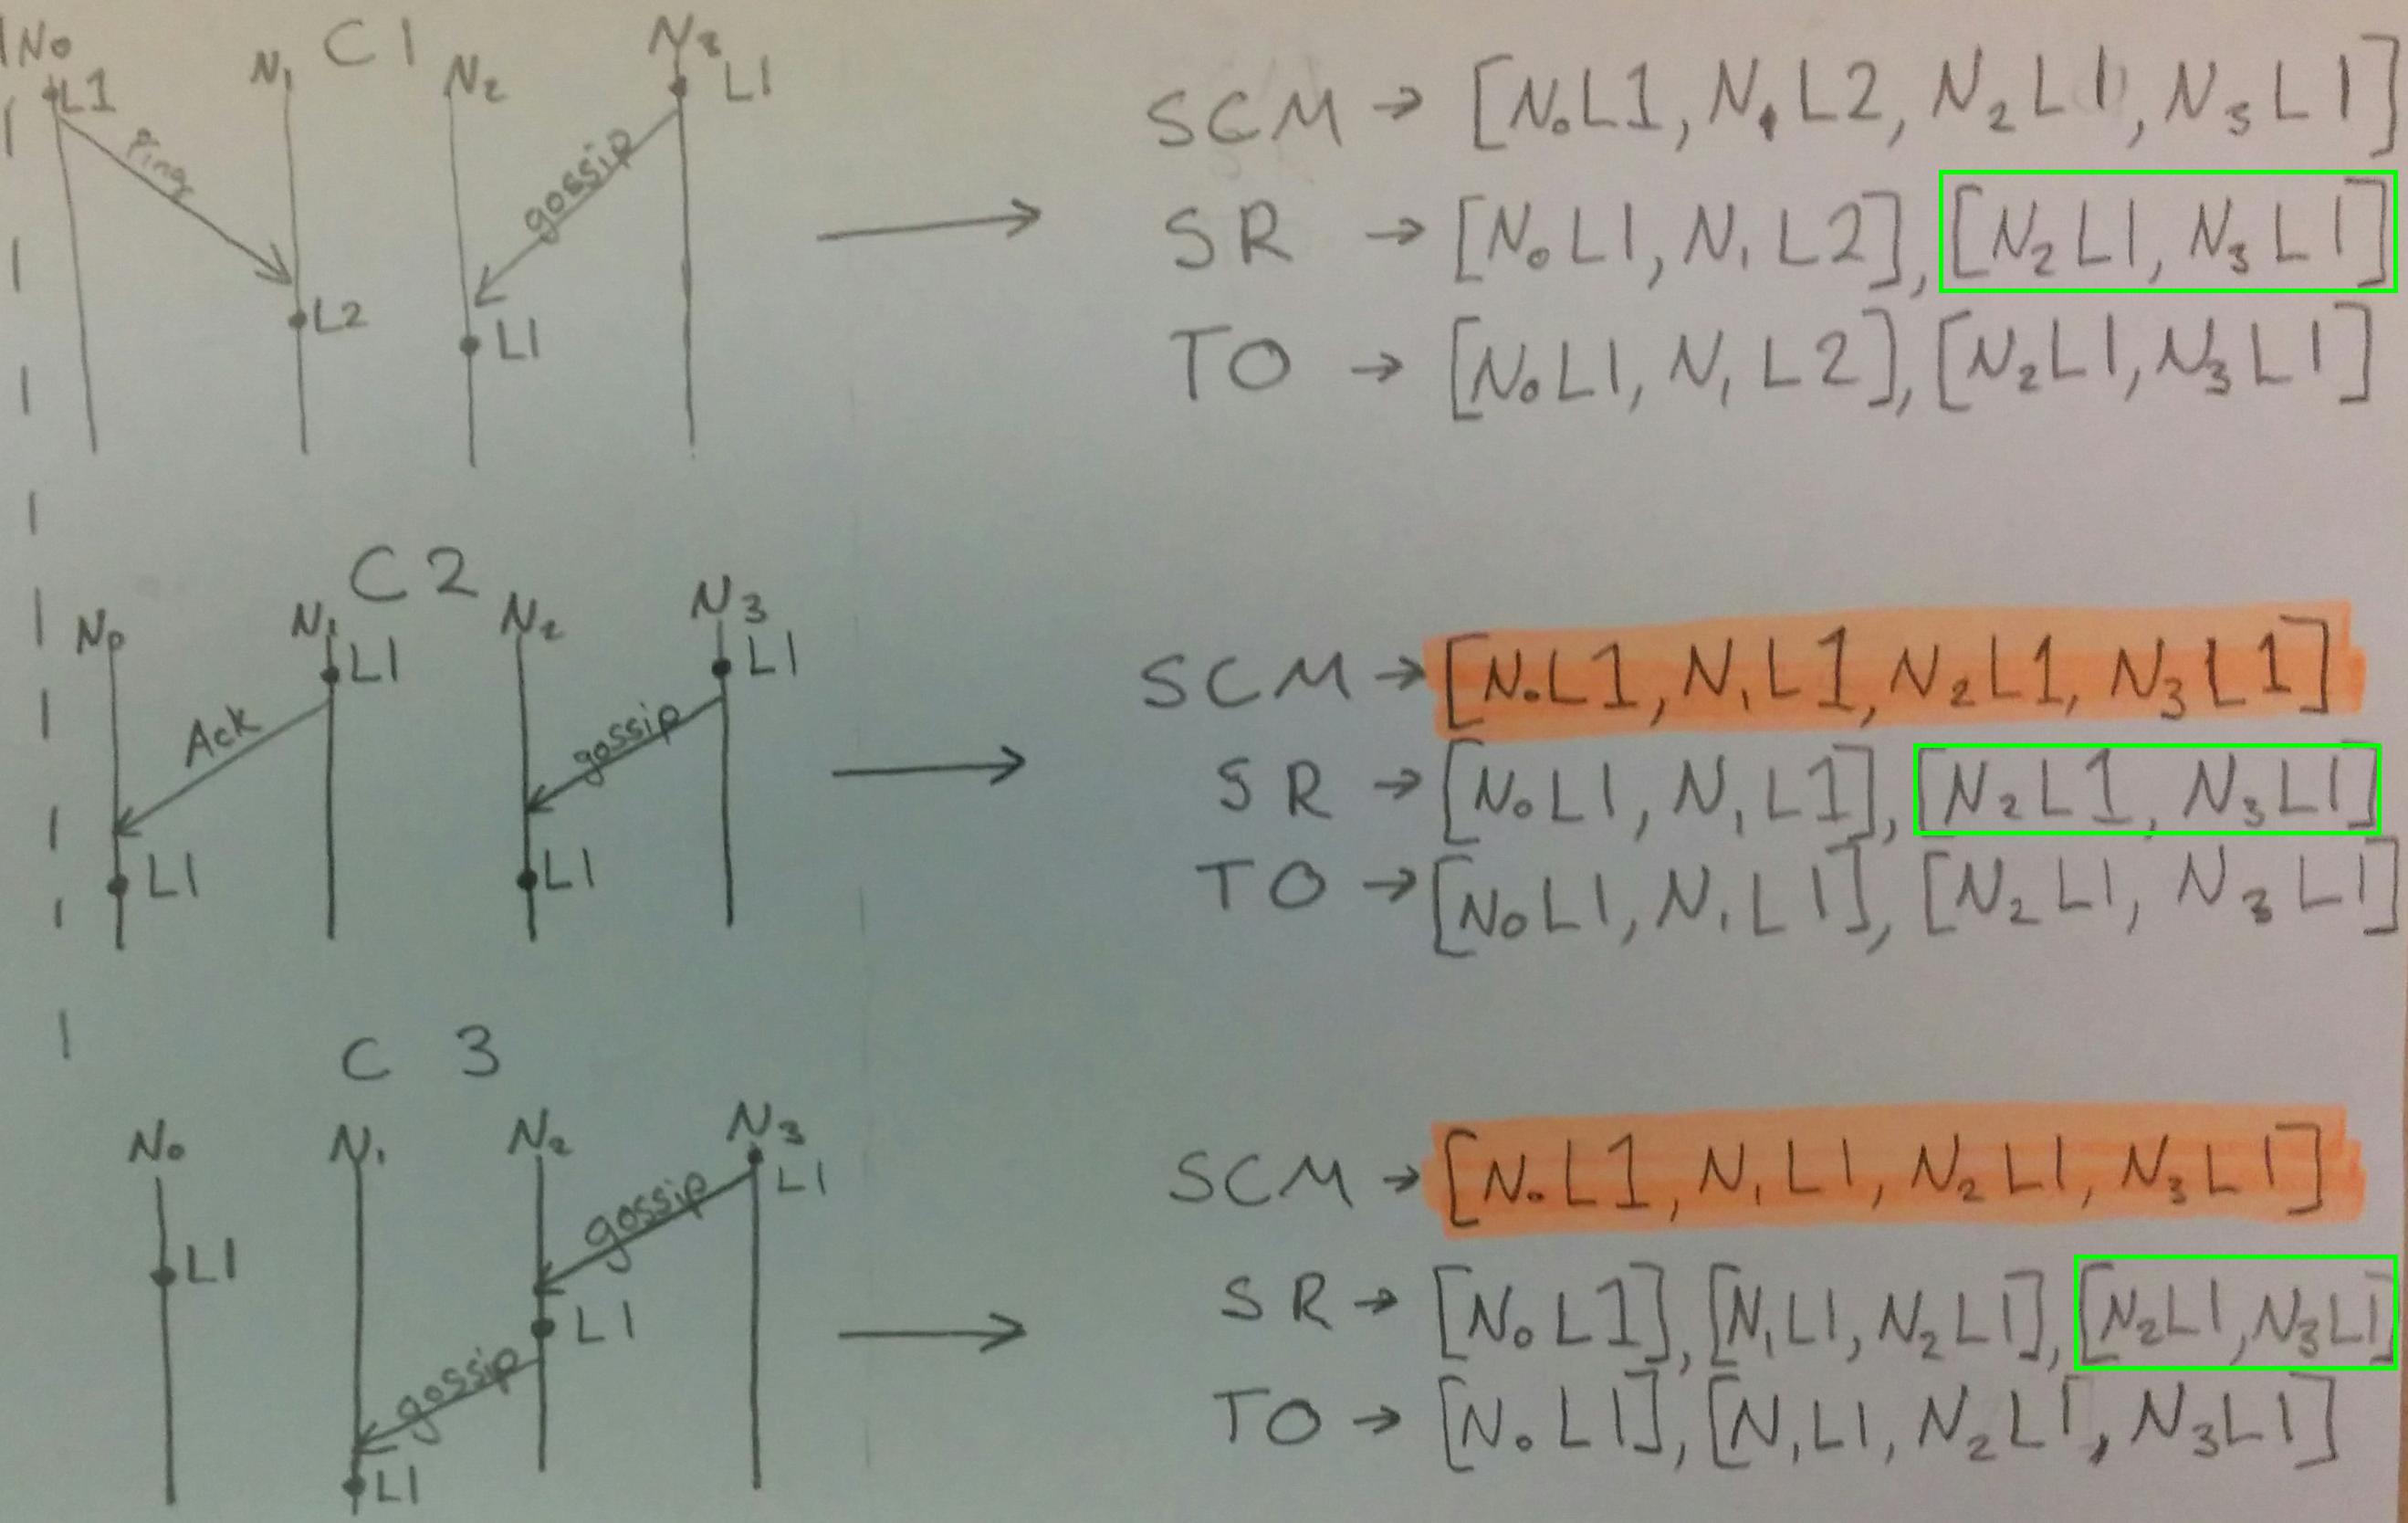 N₀ C1 N₁ N₂ N₃
L1 L1
Ping gossip
L2 L1
SCM → [N₀L1, N₁L2, N₂L1, N₃L1]
SR → [N₀L1, N₁L2], [N₂L1, N₃L1]
TO → [N₀L1, N₁L2], [N₂L1, N₃L1]
C2
N₀ N₁ N₂ N₃
L1 L1
Ack gossip
L1 L1
SCM → [N₀L1, N₁L1, N₂L1, N₃L1]
SR → [N₀L1, N₁L1], [N₂L1, N₃L1]
TO → [N₀L1, N₁L1], [N₂L1, N₃L1]
C 3
N₀ N₁ N₂ N₃
L1
gossip
L1
L1
gossip
L1
SCM → [N₀L1, N₁L1, N₂L1, N₃L1]
SR → [N₀L1], [N₁L1, N₂L1], [N₂L1, N₃L1]
TO → [N₀L1], [N₁L1, N₂L1, N₃L1]